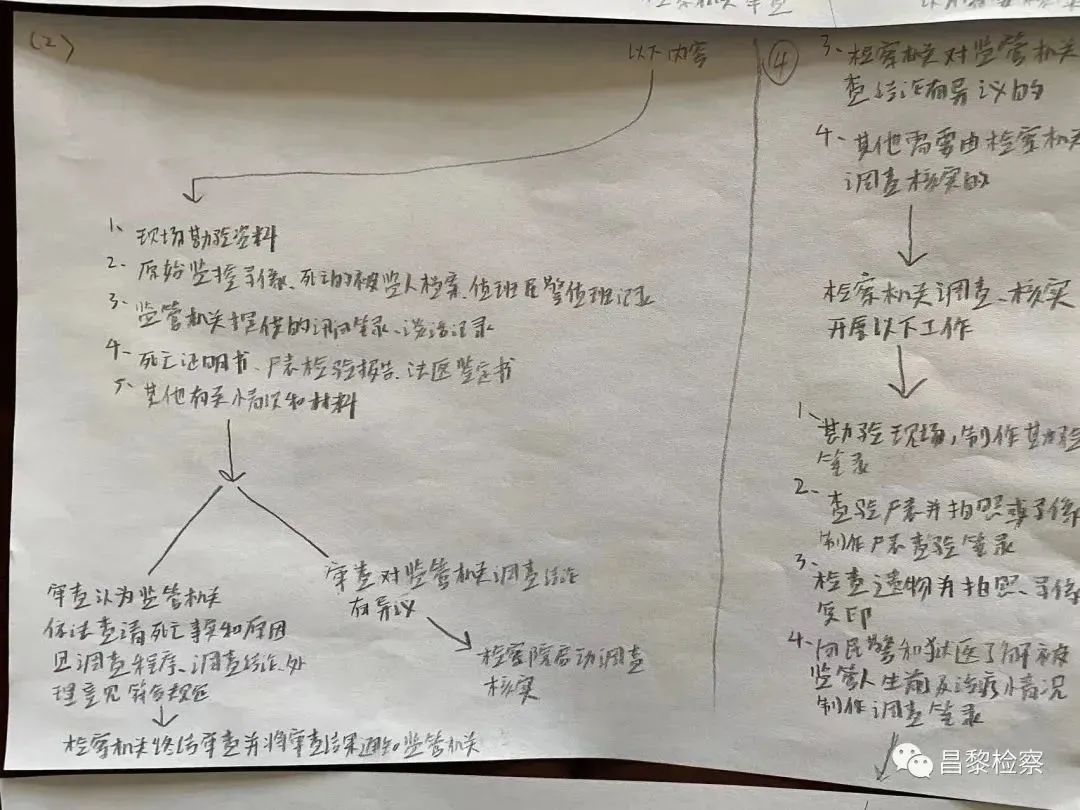 (2)
以下内容
1、现场勘验资料
2、原始监控录像、死亡的被监人档案、值班民警值班记录
3、监管机关提供的讯问笔录、谈话记录
4、死亡证明书、尸表检验报告、法医鉴定书
5、其他有关情况和材料
审查认为监管机关
依法查清死亡事实和原因
且调查程序、调查结论、处
理意见符合规定
检察机关终结审查并将审查结果通知监管机关
审查对监管机关调查结论
有异议
检察院启动调查
核实
④
3、检察机关对监管机关
查结论有异议的
4、其他需要由检察机关
调查核实的
检察机关调查、核实
开展以下工作
1、勘验现场,制作勘验
笔录
2、查验尸表并拍照或录像
制作尸表查验笔录
3、检查遗物并拍照、录像
复印
4、向民警和狱医了解被
监管人生前及治疗情况
制作调查笔录
昌黎检察